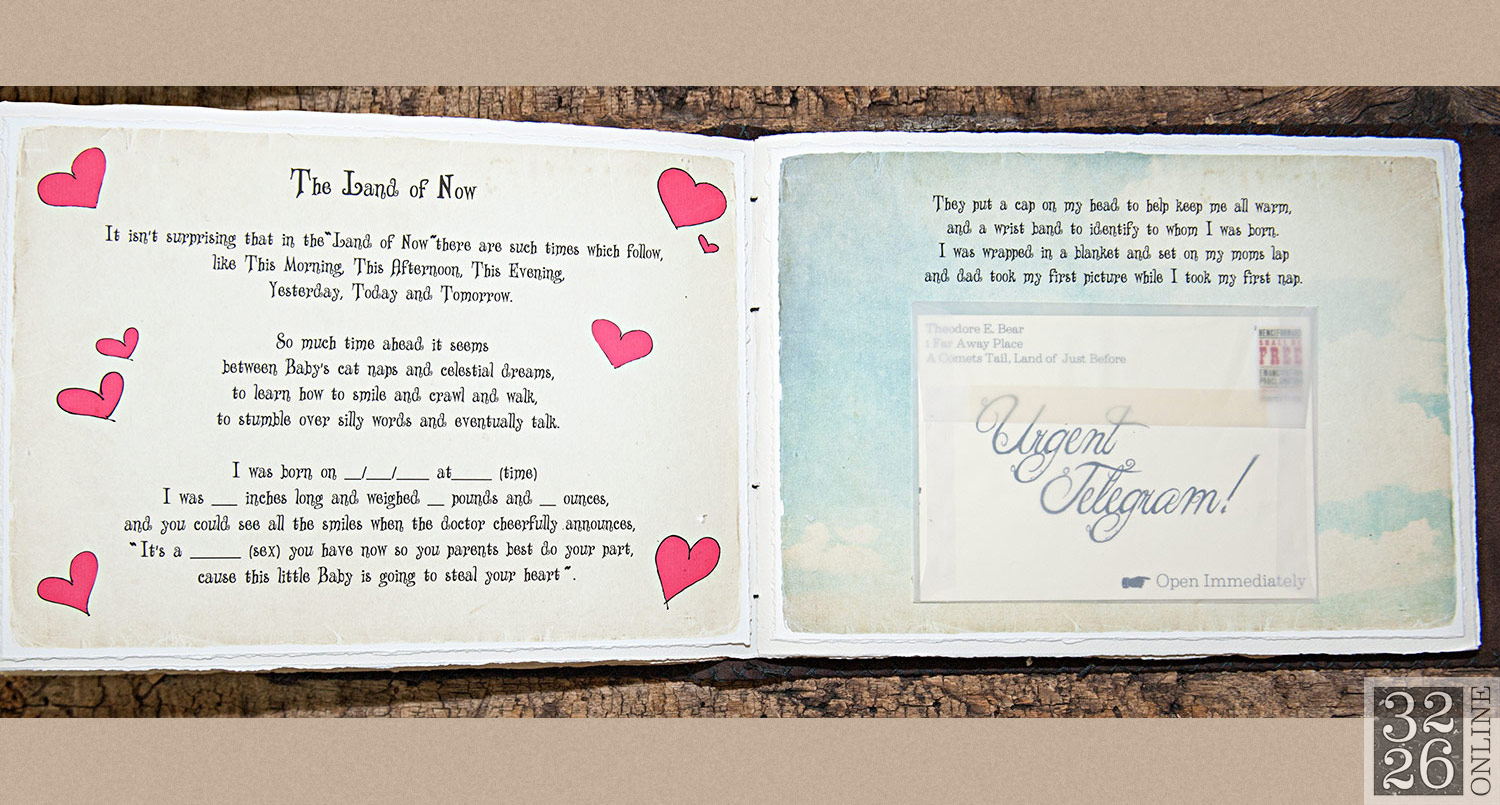 The Land of Now
It isn't surprising that in the "Land of Now" there are such times which follow,
like This Morning, This Afternoon, This Evening,
Yesterday, Today and Tomorrow.
So much time ahead it seems
between Baby's cat naps and celestial dreams,
to learn how to smile and crawl and walk,
to stumble over silly words and eventually talk.
I was born on __/__/___ at____ (time)
I was ___ inches long and weighed __ pounds and __ ounces,
and you could see all the smiles when the doctor cheerfully announces,
"It's a ______ (sex) you have now so you parents best do your part,
cause this little Baby is going to steal your heart".
They put a cap on my head to help keep me all warm,
and a wrist band to identify to whom I was born.
I was wrapped in a blanket and set on my moms lap
and dad took my first picture while I took my first nap.
Theodore E. Bear
1 Far Away Place
A Comets Tail, Land of Just Before
HENCEFORWARD
SHALL BE
FREE
EMANCIPATION
PROCLAMATION
Urgent
Telegram!
Open Immediately
32
26
ONLINE